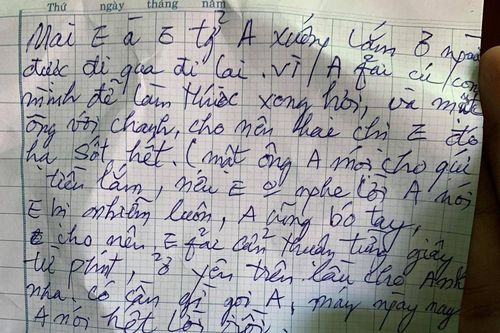 Thứ ngày tháng năm
Mai E à E tự A xuống tắm ở ngoài
được đi qua đi lại. vì A fải cú con
mình để làm thuốc xong hơi, và mật
ông với chanh, cho nên hai chị E đó
hạ sốt hết. (mật ông A mới cho gửi
tiền lắm, nếu E o nghe lời A nói
E bị nhiễm luôn, A cũng bó tay,
cho nên E fải cẩn thuẩn từng giây
từ phút, ở yên trên lầu cho Anh
nha. có cần gì gọi A, mấy ngày nay
A nói hết lời rồi.